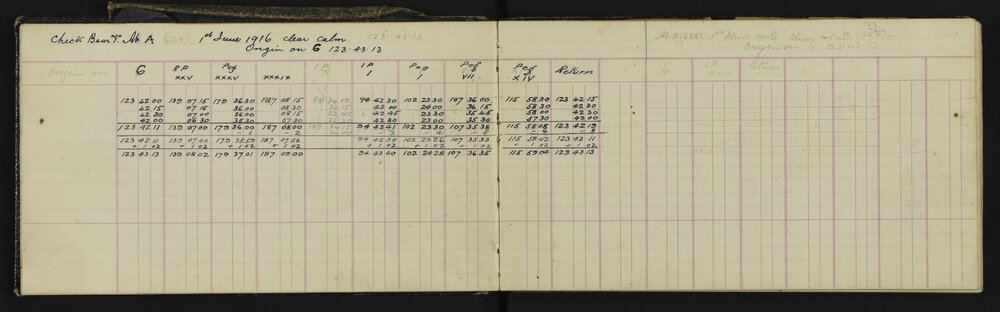 Check Bears. At A (626) 1st June 1916 clear calm 123·43·13
Origin on G 123·43·13
Origin on G RP Peg IP IP Peg Peg Peg Return
XXV XXXV XXXIX I I VII XIV
123 42 00 139 07 15 179 36 30 187 08 15 94 42 30 102 23 30 107 36 00 115 58 30 123 42 15
42 15 07 15 36 00 08 30 43 00 24 00 36 15 58 30 42 30
42 30 07 00 36 00 08 15 42 45 23 30 35 45 58 00 42 30
42 00 06 30 35 30 07 30 42 30 23 00 35 30 57 30 42 00
123 42 11 139 07 00 179 36 00 187 08 00 94 42 41 102 23 30 107 35 38 115 58 08 123 42 19
123 42 11 139 07 00 179 35 59 187 07 58 94 42 38 102 23 26 107 35 33 115 58 02 123 42 11
+ 1 02 + 1 02 + 1 02 + 1 02 + 1 02 + 1 02 + 1 02 + 1 02 + 1 02
123 43 13 139 08 02 179 37 01 187 09 00 94 43 40 102 24 28 107 36 35 115 59 04 123 43 13
At A (626) 1st June 1916
Origin on G 123·43·13
G IP Return